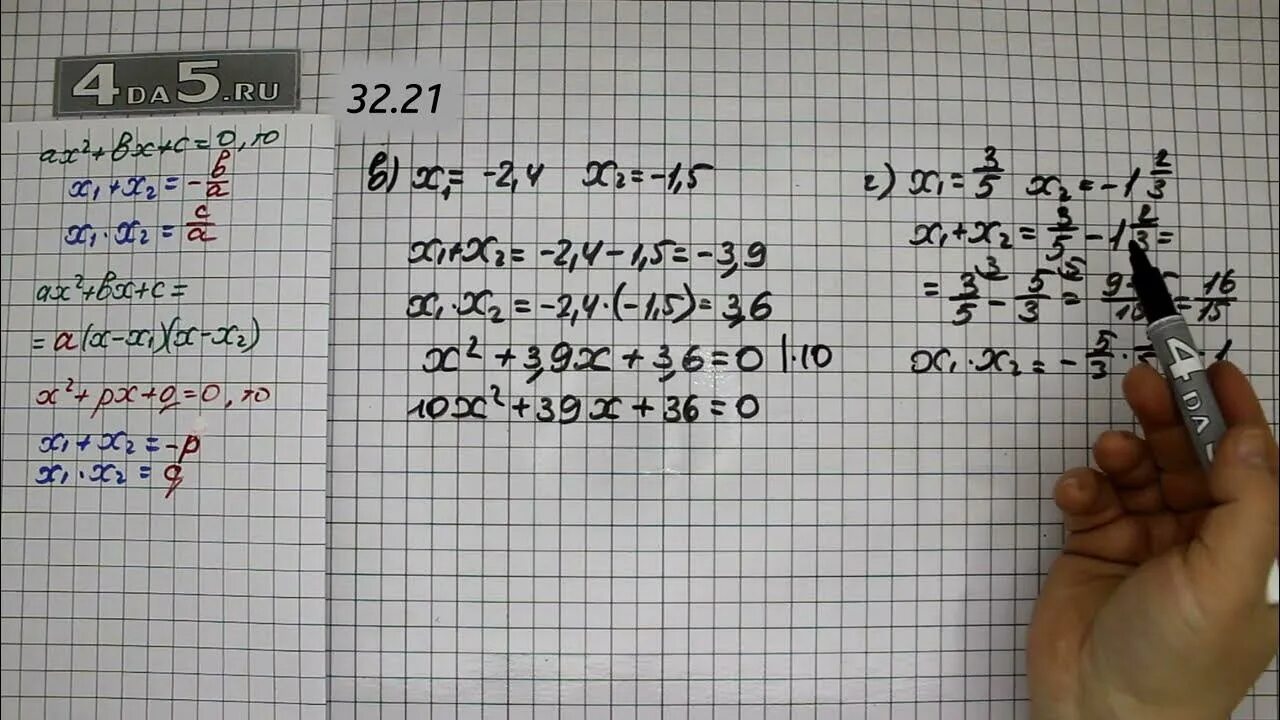 4DA5.RU
32.21
ax²+bx+c=0, то
x₁+x₂=-b/a
x₁·x₂=c/a
ax²+bx+c=
=a(x-x₁)(x-x₂)
x²+px+q=0, то
x₁+x₂=-p
x₁·x₂=q
в) x₁=-2,4 x₂=-1,5
x₁+x₂=-2,4-1,5=-3,9
x₁·x₂=-2,4·(-1,5)=3,6
x²+3,9x+3,6=0 |·10
10x²+39x+36=0
г) x₁=3/5 x₂=-1 2/3
x₁+x₂=3/5-1 2/3=
=3/5-5/3= =16/15
x₁·x₂=-5/3· 1
4DA